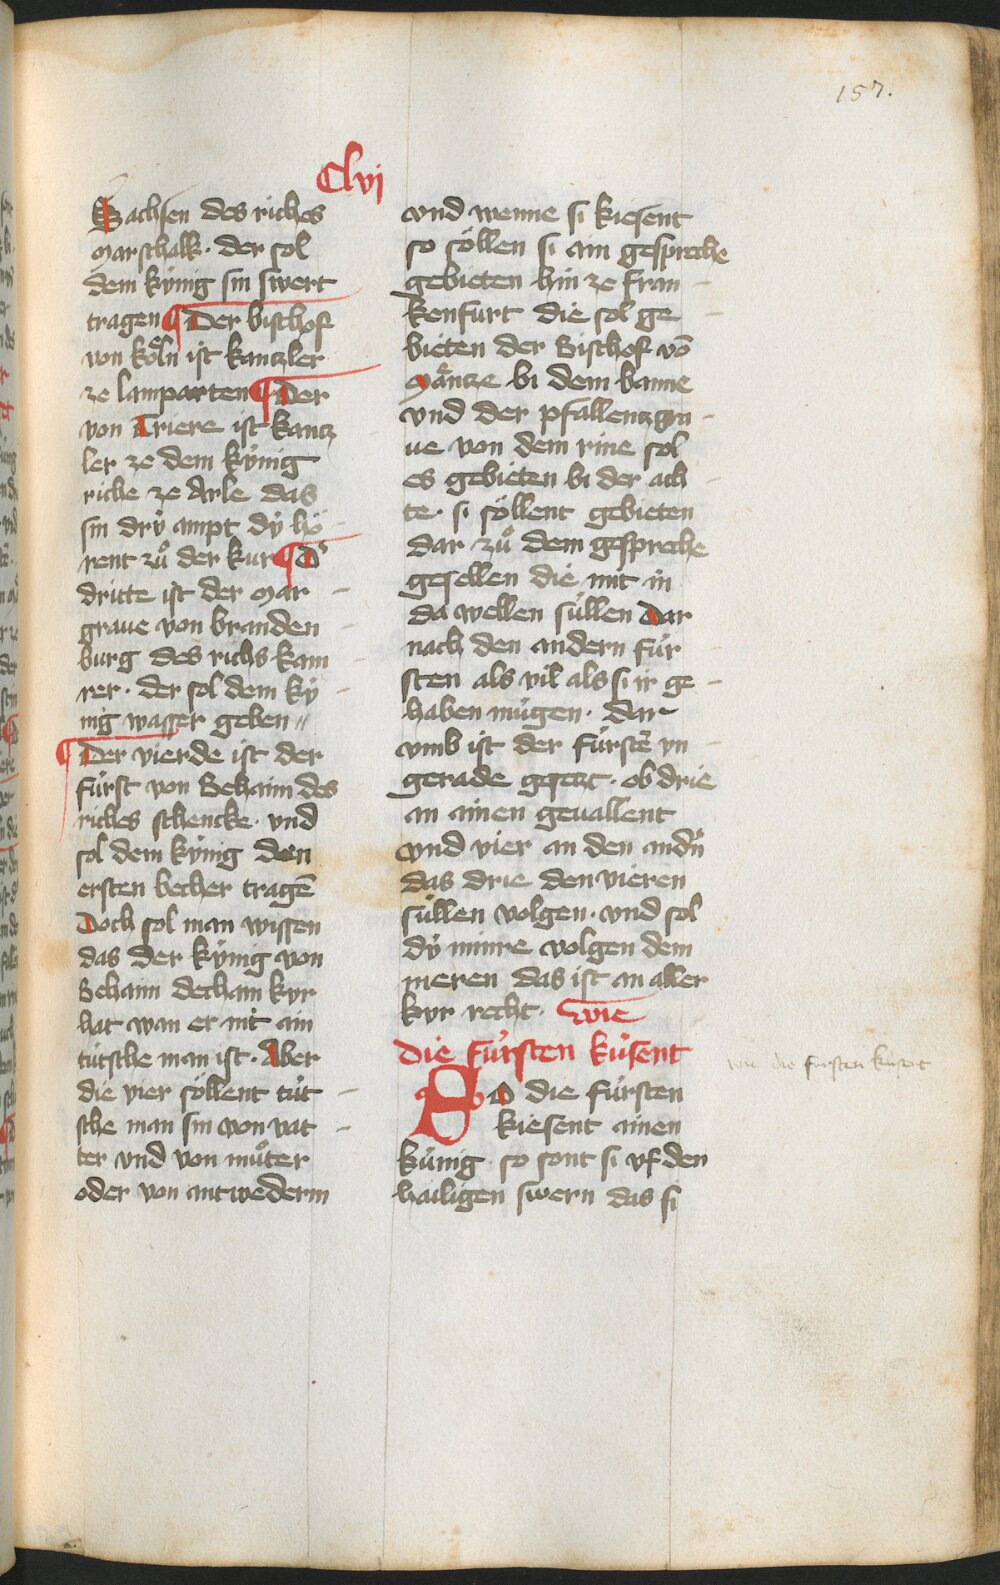 157.
Clvj
Sachsen des riches
marschalk · der sol
dem kÿnig sin swert
tragen ¶ Der bischof
von koͤln ist kantzler
ze lamparten ¶ Der
von Triere ist kantz
ler ze dem kÿnig
riche ze Arle das
sin drÿ ampt dÿ hoͤ
rent zuͦ der kur ¶ D
dritte ist der mar -
graue von branden -
burg des richs kam -
rer · der sol dem kÿ -
nig wasser geben //
¶ Der vierde ist der
fúrst von Behaim des
riches schencke · vnd
sol dem kÿnig den
ersten becher tragē
Doch sol man wissen
das der kÿnig von
Behaim dechain kyr
hat wan er nit ain
tútsche man ist · Aber
die vier söllent tút -
sche man sin von vat -
ter vnd von muͦter
oder von antwederm
vnd wenne si kiesent
so söllen si ain gespreche
gebieten hin ze fran -
kenfurt die sol ge -
bieten der Bischof vō
Maͤntze bi dem banne
vnd der pfallentzgra -
ue von dem rine sol
es gebieten bi der ach -
te · si söllent gebieten
dar zuͦ dem gespreche
gesellen die mit in
da wellen súllen Dar
nach den andern fúr -
sten als vil als si ir ge -
haben múgen · dar
vmb ist der fúrstē vn -
gerade gesetzt · ob drie
an ainen geuallent
vnd vier an den andn̄
das drie den vieren
súllen volgen · vnd sol
dÿ minre volgen dem
meren das ist an aller
kyr recht · wie
die fúrsten kúsent
wie die fursten kusent
SO die fúrsten
kiesent ainen
kúnig so sont si vf den
hailigen swern das si